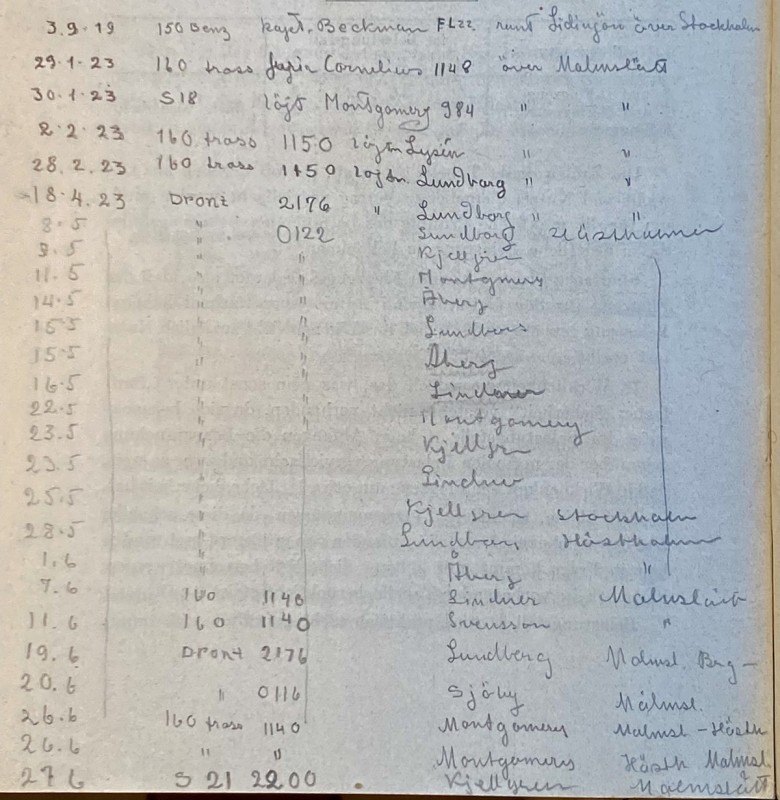 3.9.19 150 Benz kapt. Beckman FL22 runt Lidingön över Stockholm
29.1.23 160 trass Cornelius 1148 över Malmslätt
30.1.23 S18 löjt Montgomery 984 " "
2.2.23 160 trass 1150 löjtn Lysén " "
28.2.23 160 trass 1150 löjtn. Lundberg " "
18.4.23 Dront 2176 " Lundberg " "
8.5 " 0122 Lundberg Hästholmen
9.5 " " Kjellgren
11.5 " " Montgomery
14.5 " " Åberg
15.5 " " Lundberg
15.5 " " Åberg
16.5 " " Lindner
22.5 " " Montgomery
23.5 " " Kjellgren
23.5 " Lindner
25.5 " Kjellgren Stockholm
28.5 " Lundberg Hästholmen
1.6 " Åberg "
7.6 160 1140 Lindner Malmslätt
11.6 160 1140 Svensson "
19.6 Dront 2176 Lundberg Malmsl. Brg -
20.6 " 0116 Sjöby Malmsl.
26.6 160 trass 1140 Montgomery Malmsl - Hästh
26.6 " " Montgomery Hästh Malmsl.
27.6 S 21 2200 Kjellgren Malmslätt